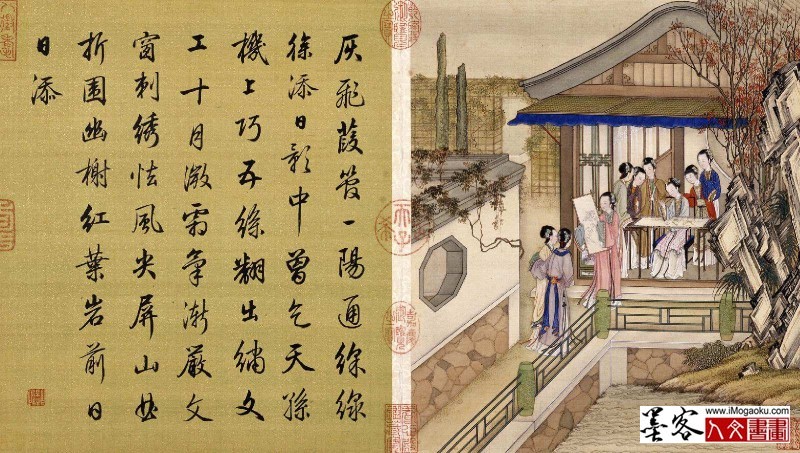 灰飛葭管一陽通線線
徐添日影中曾乞天孫
機上巧五絲翻出繡文
工十月微霜氣漸嚴文
窗刺繡怯風尖屏山曲
折圍幽榭紅葉岩前日
日添
墨客
www.iMogaoku.com
人文書畫